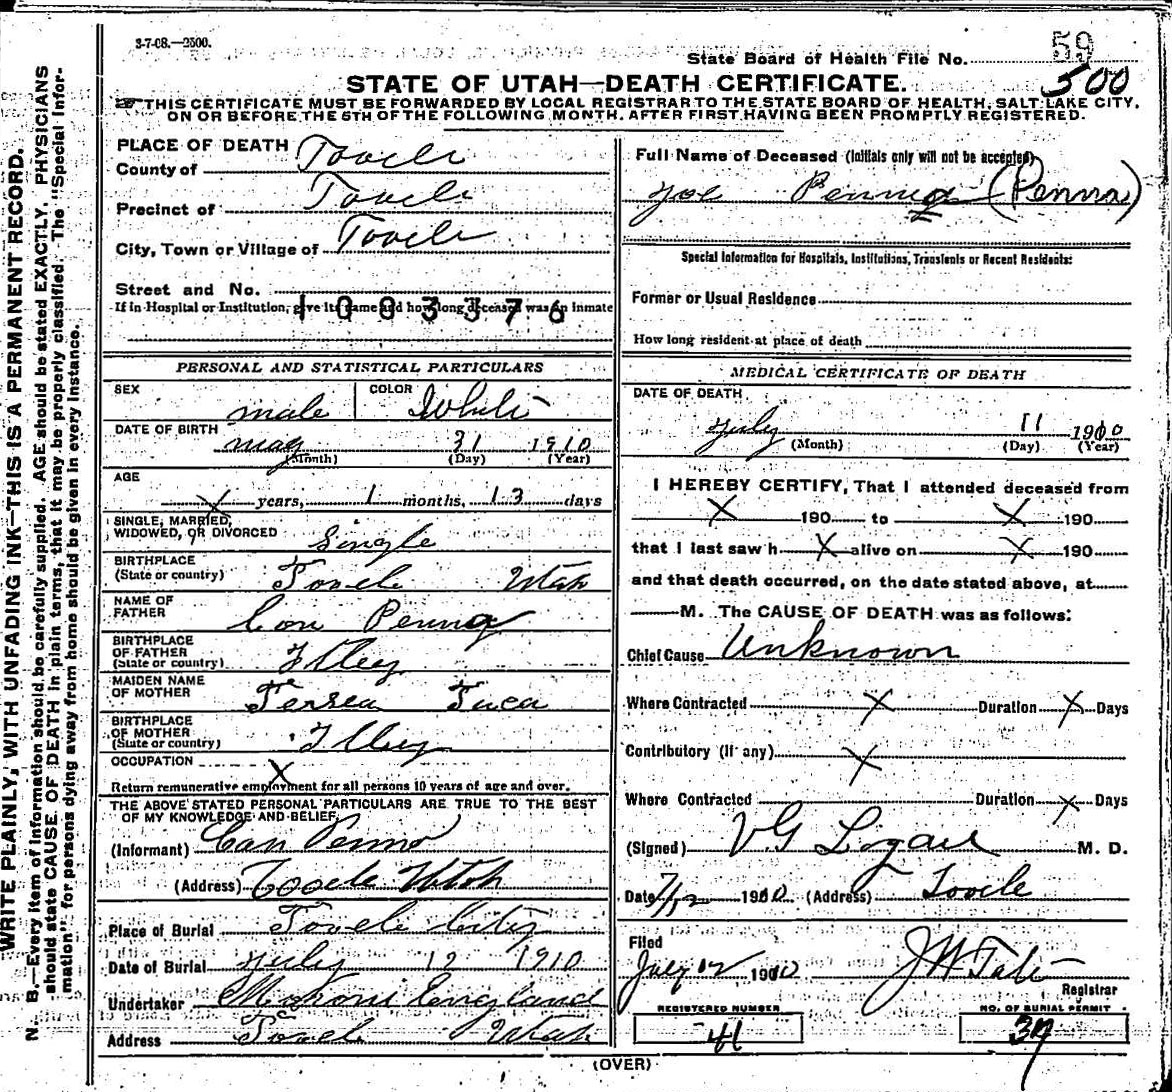 3-7-08.—2500.
State Board of Health File No. 59
500
STATE OF UTAH—DEATH CERTIFICATE.
THIS CERTIFICATE MUST BE FORWARDED BY LOCAL REGISTRAR TO THE STATE BOARD OF HEALTH, SALT LAKE CITY,
ON OR BEFORE THE 5TH OF THE FOLLOWING MONTH, AFTER FIRST HAVING BEEN PROMPTLY REGISTERED.
WRITE PLAINLY, WITH UNFADING INK—THIS IS A PERMANENT RECORD.
N. B.—Every item of information should be carefully supplied. AGE should be stated EXACTLY. PHYSICIANS
should state CAUSE OF DEATH in plain terms, that it may be properly classified. The "Special Infor-
mation" for persons dying away from home should be given in every instance.
PLACE OF DEATH
County of Tooele
Precinct of Tooele
City, Town or Village of Tooele
Street and No.
If in Hospital or Institution, give its name and how long deceased was an inmate
1003376
Full Name of Deceased (Initials only will not be accepted)
Joe Penna (Penna)
Special Information for Hospitals, Institutions, Transients or Recent Residents:
Former or Usual Residence
How long resident at place of death
PERSONAL AND STATISTICAL PARTICULARS
SEX male COLOR White
DATE OF BIRTH may 31 1910
(Month) (Day) (Year)
AGE
X years, 1 months, 13 days
SINGLE, MARRIED,
WIDOWED, OR DIVORCED Single
BIRTHPLACE
(State or country) Tooele Utah
NAME OF
FATHER Con Penna
BIRTHPLACE
OF FATHER
(State or country) Itley
MAIDEN NAME
OF MOTHER Tersea Tuca
BIRTHPLACE
OF MOTHER
(State or country) Itley
OCCUPATION X
Return remunerative employment for all persons 10 years of age and over.
THE ABOVE STATED PERSONAL PARTICULARS ARE TRUE TO THE BEST
OF MY KNOWLEDGE AND BELIEF
(Informant) Con Penna
(Address) Tooele Utah
Place of Burial Tooele City
Date of Burial July 12 1910
Undertaker England
Address Tooele Utah
MEDICAL CERTIFICATE OF DEATH
DATE OF DEATH
July 11 1910
(Month) (Day) (Year)
I HEREBY CERTIFY, That I attended deceased from
X 190 to X 190
that I last saw h X alive on X 190
and that death occurred, on the date stated above, at
M. The CAUSE OF DEATH was as follows:
Chief Cause Unknown
Where Contracted X Duration X Days
Contributory (if any) X
Where Contracted Duration X Days
(Signed) M. D.
Date 7/12 1910 (Address) Tooele
Filed
July 12 1910 J W Tate
Registrar
REGISTERED NUMBER
41
NO. OF BURIAL PERMIT
39
(OVER)